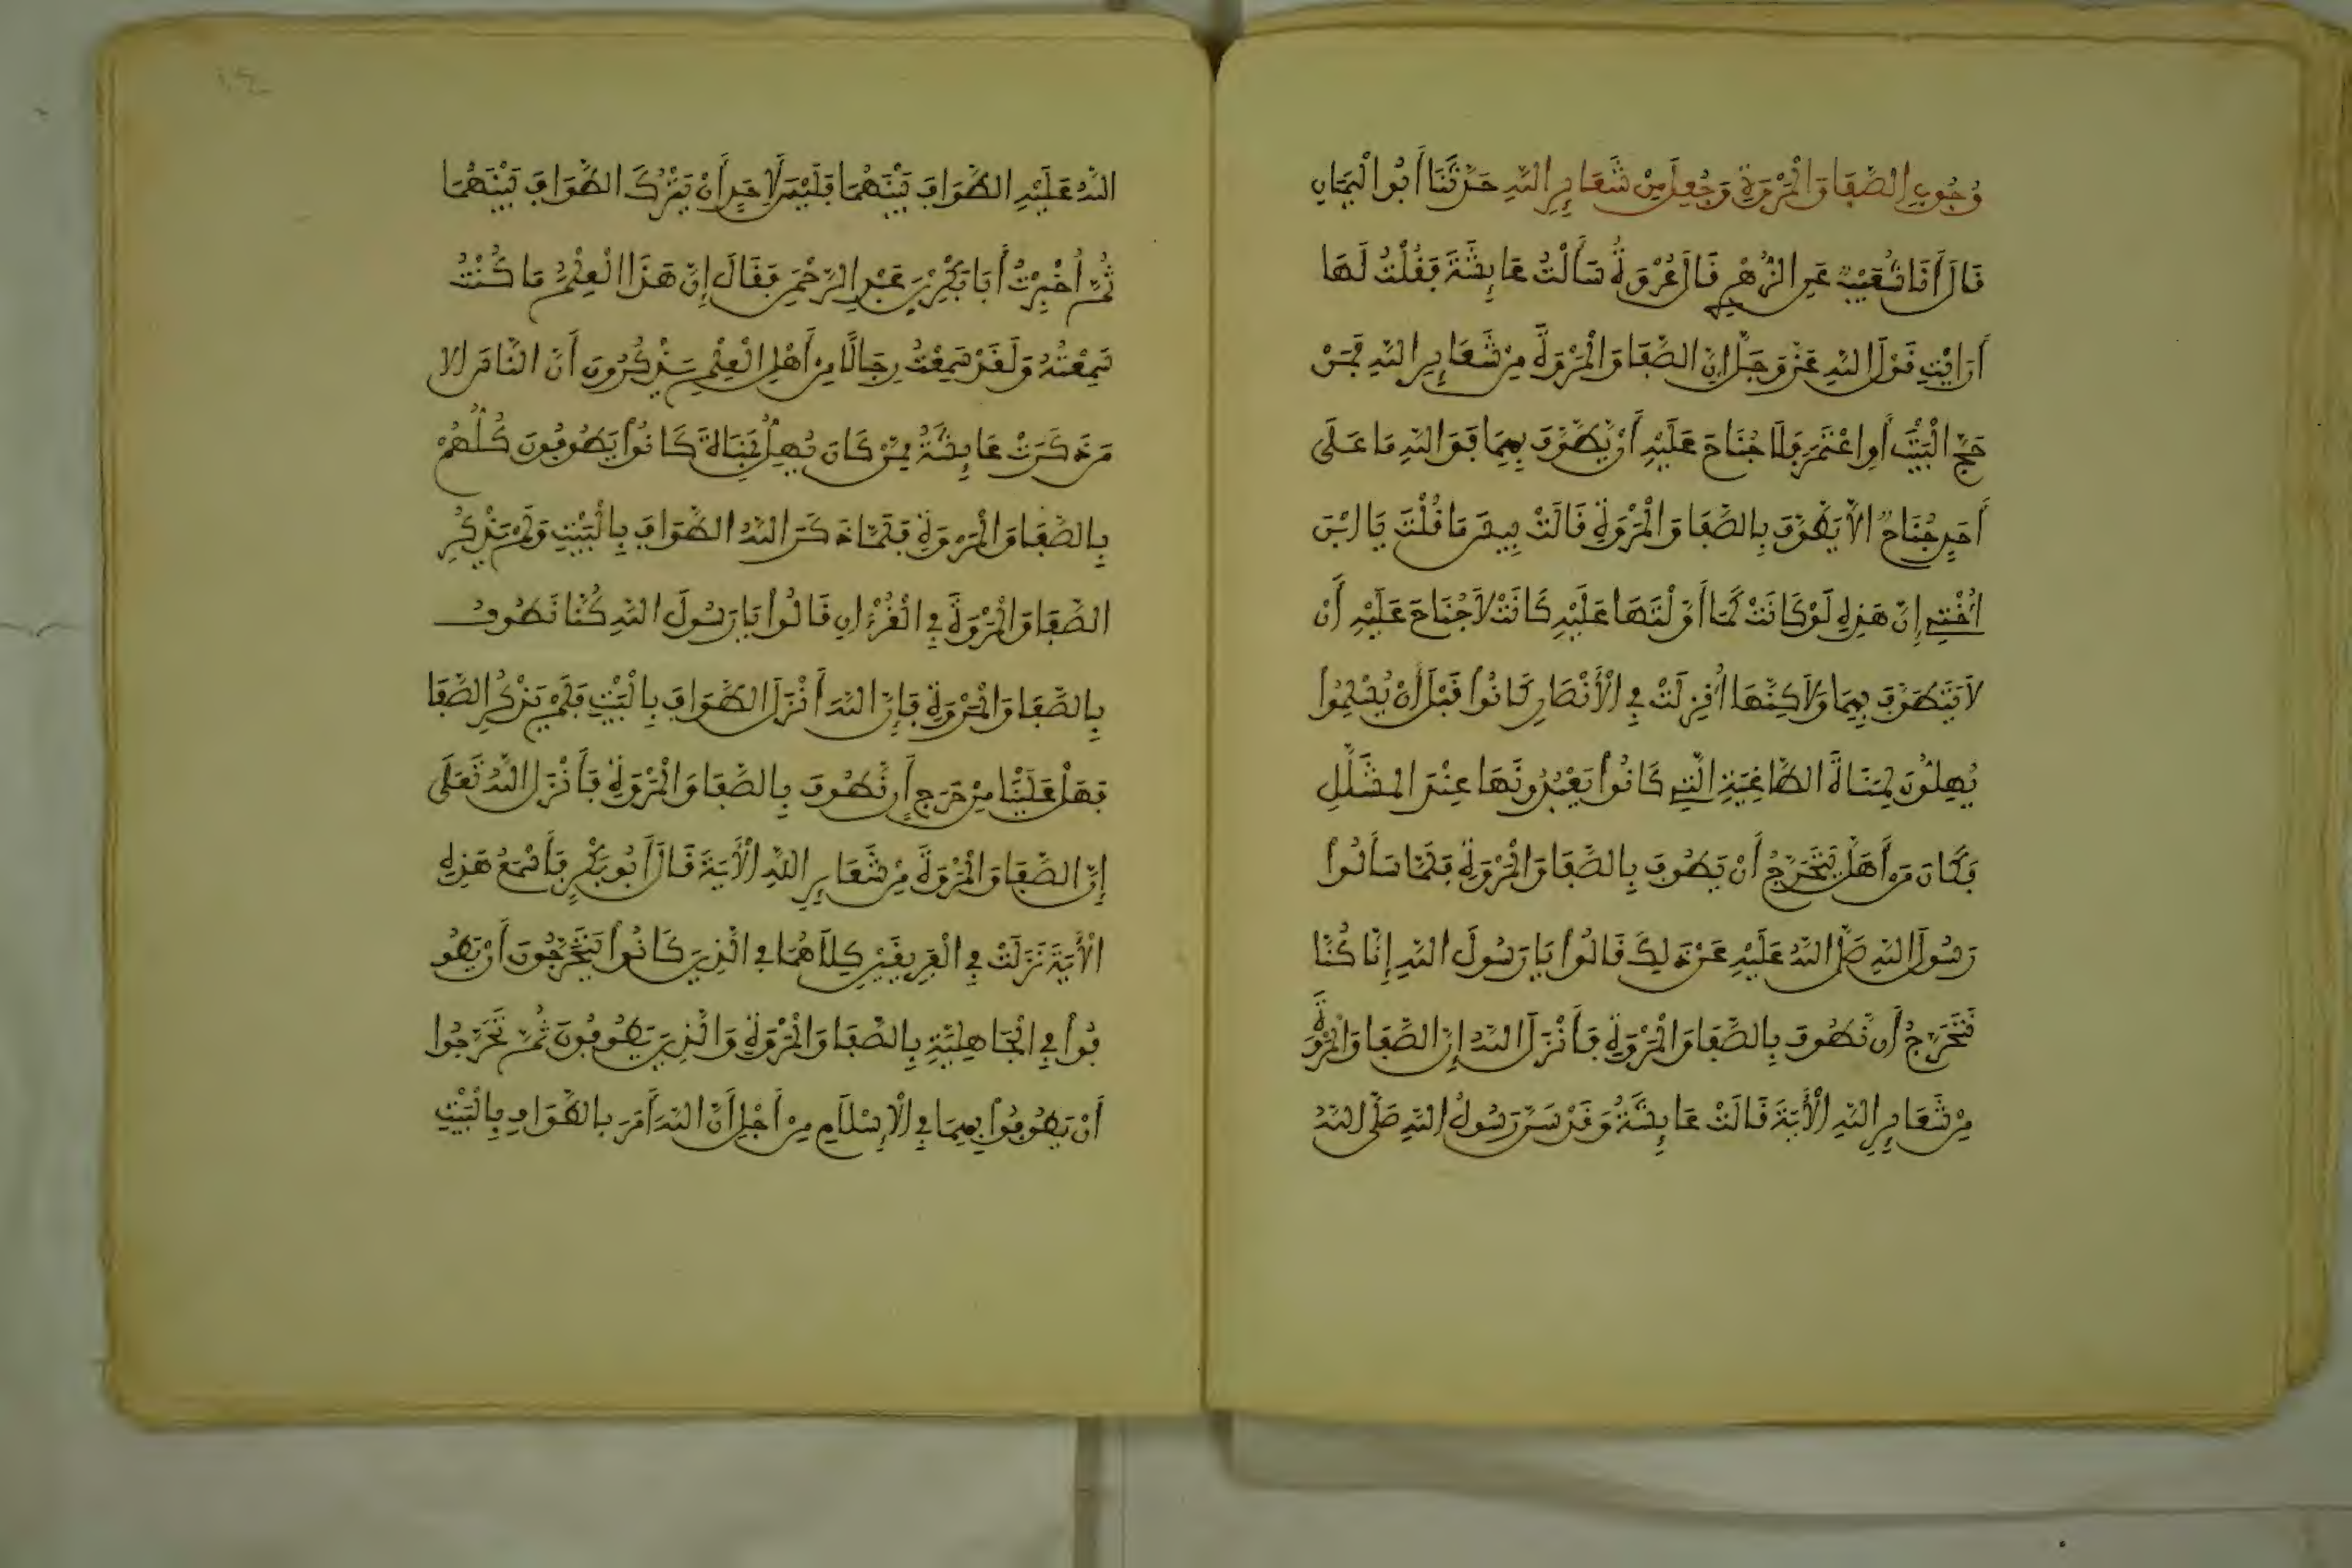 وُجُوبِ الصَّفَا وَالْمَرْوَةِ وَجُعِلَ مِنْ شَعَائِرِ اللَّهِ حَدَّثَنَا أَبُو الْيَمَانِ
قَالَ أَنَا شُعَيْبٌ عَنِ الزُّهْرِي قَالَ عُرْوَةُ سَأَلْتُ عَائِشَةَ فَقُلْتُ لَهَا
أَرَايْتِ قَوْلَ اللَّهِ عَزَّ وَجَلَّ إِنَّ الصَّفَا وَالْمَرْوَةَ مِنْ شَعَائِرِ اللَّهِ فَمَنْ
حَجَّ الْبَيْتَ أَوِ اعْتَمَرَ فَلَا جُنَاحَ عَلَيْهِ أَنْ يَطَّوَّفَ بِهِمَا فَوَاللَّهِ مَا عَلَى
أَحَدٍ جُنَاحٌ الَّا يَطَّوَّفَ بِالصَّفَا وَالْمَرْوَةِ قَالَتْ بِيسَ مَا قُلْتَ يَا ابْنَ
أُخْتِي إِنَّ هَذِهِ لَوْ كَانَتْ كَمَا أَوَّلْتَهَا عَلَيْهِ كَانَتْ لَا جُنَاحَ عَلَيْهِ أَنْ
لَا يَتَطَوَّفَ بِهِمَا وَلَاكِنَّهَا أُنْزِلَتْ فِي الْأَنْصَارِ كَانُوا قَبْلَ أَنْ يُسْلِمُوا
يُهِلُّونَ لِمَنَاةَ الطَّاغِيَةِ الَّتِي كَانُوا يَعْبُدُونَهَا عِنْدَ الْمُشَلَّلِ
فَكَانَ مَنْ أَهَلَّ يَتَحَرَّجُ أَنْ يَطُوفَ بِالصَّفَا وَالْمَرْوَةِ فَلَمَّا سَأَلُوا
رَسُولَ اللَّهِ صَلَّى اللَّهُ عَلَيْهِ عَنْ ذَلِكَ قَالُوا يَا رَسُولَ اللَّهِ إِنَّا كُنَّا
نَتَحَرَّجُ أَن نَّطُوفَ بِالصَّفَا وَالْمَرْوَةِ فَأَنْزَلَ اللَّهُ إِنَّ الصَّفَا وَالْمَرْوَةَ
مِنْ شَعَائِرِ اللَّهِ الْأَيَةَ قَالَتْ عَائِشَةُ وَقَدْ سَنَّ رَسُولُ اللَّهِ صَلَّى اللَّهُ
اللَّهُ عَلَيْهِ الطَّوَافَ بَيْنَهُمَا فَلَيْسَ لِأَحَدٍ أَنْ يَتْرُكَ الطَّوَافَ بَيْنَهُمَا
ثُمَّ أَخْبَرْتُ أَبَا بَكْرِ بْنَ عَبْدِ الرَّحْمَنِ فَقَالَ إِنَّ هَذَا الْعِلْمُ مَا كُنْتُ
سَمِعْتُهُ وَلَقَدْ سَمِعْتُ رِجَالًا مِنْ أَهْلِ الْعِلْمِ يَذْكُرُونَ أَنَّ النَّاسَ إلا
مَن ذَكَرَتْ عَائِشَةُ مِمَّنْ كَانَ يُهِلُّ بِمَنَاةَ كَانُوا يَطُوفُونَ كُلُّهُمْ
بِالصَّفَا وَالْمَرْوَةِ فَلَمَّا ذَكَرَ اللَّهُ الطَّوَافَ بِالْبَيْتِ وَلَمْ يَذْكُرِ
الصَّفَا وَالْمَرْوَةَ فِي الْقُرْءَانِ قَالُوا يَا رَسُولَ اللَّهِ كُنَّا نَطُوفُ
بِالصَّفَا وَالْمَرْوَةِ فَإِنَّ اللَّهَ أَنْزَلَ الطَّوَافَ بِالْبَيْتِ فَلَمْ يَذْكُرِ الصَّفَا
فَهَلْ عَلَيْنَا مِنْ حَرَجٍ أَن نَّطُوفَ بِالصَّفَا وَالْمَرْوَةِ فَأَنْزَلَ اللَّهُ تَعَلَى
إِنَّ الصَّفَا وَالْمَرْوَةَ مِنْ شَعَائِرِ اللَّهِ الْأَيَةَ قَالَ أَبُو بَكْرٍ فَأَسْمَعُ هَذِهِ
الْأَيَةَ نَزَلَتْ فِي الْفَرِيقَيْنِ كِلَاهُمَا فِي الَّذِينَ كَانُوا يَتَحَرَّجُونَ أَنْ يَطُو
فُوا فِي الْجَاهِلِيَّةِ بِالصَّفَا وَالْمَرْوَةِ وَالَّذِينَ يَطُوفُونَ ثُمَّ تَحَرَّجُوا
أَنْ يَطُوفُوا بِهِمَا فِي الْإِسْلَامِ مِنْ أَجْلِ أَنَّ اللَّهَ أَمَرَ بِالطَّوَافِ بِالْبَيْتِ